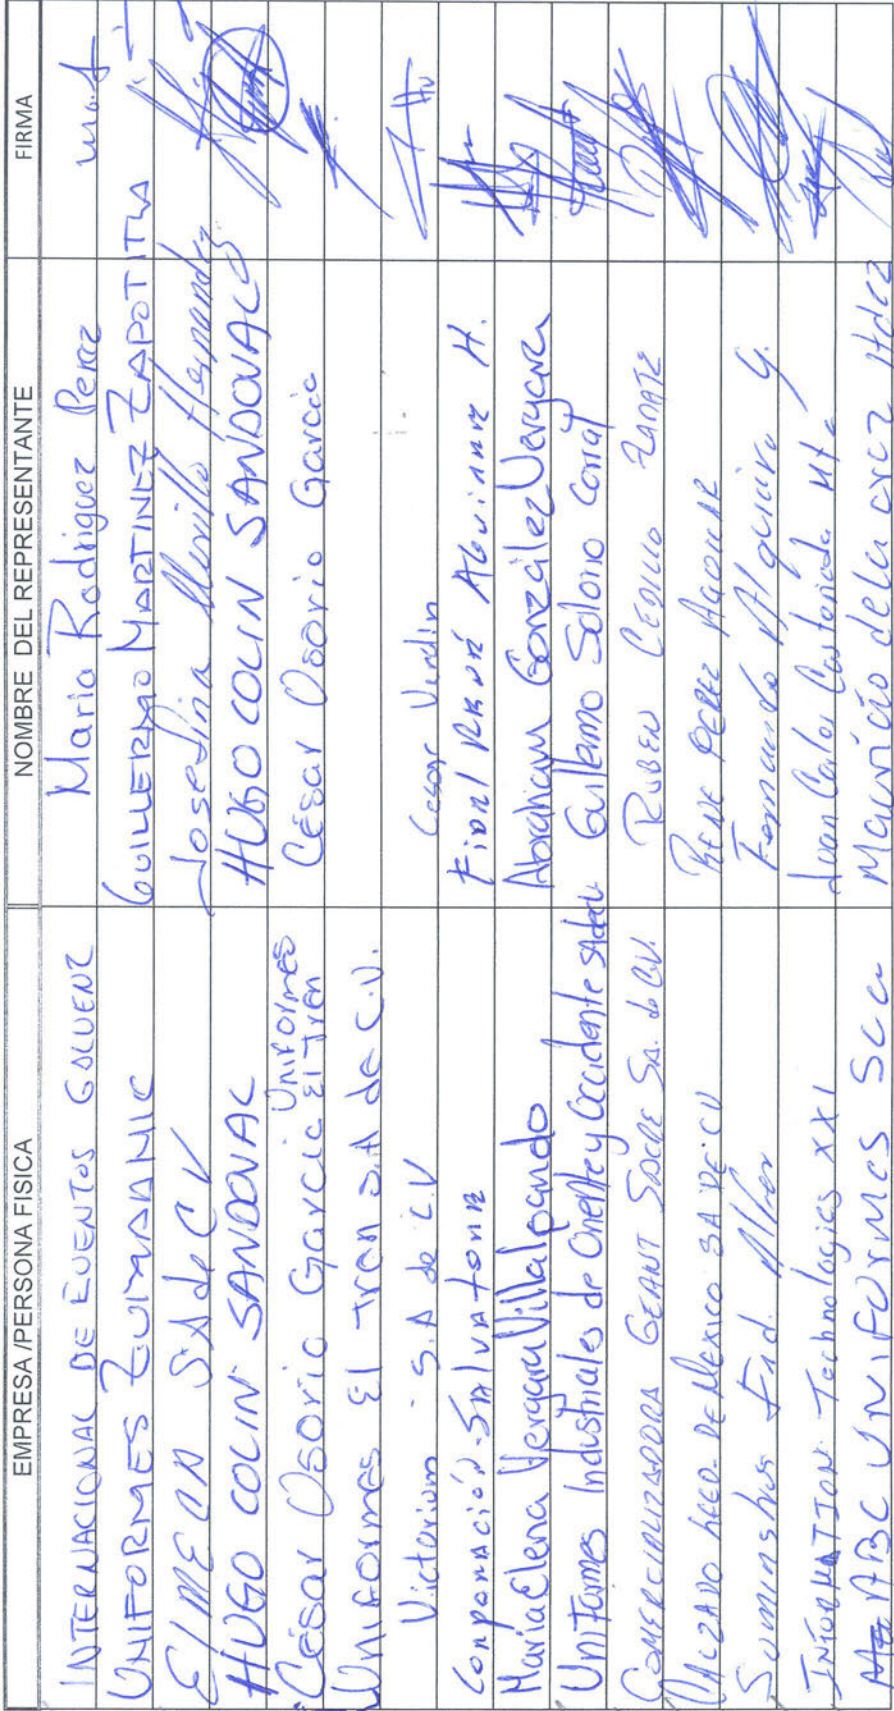 EMPRESA /PERSONA FISICA NOMBRE DEL REPRESENTANTE FIRMA
INTERNACIONAL DE EVENTOS GOLUENZ Maria Rodriguez Perez
UNIFORMES ZUIMADANIC GUILLERMO MARTINEZ ZAPOTITLA
SA de CV Josefina Murillo Hernandez
HUGO COLIN SANDOVAL HUGO COLIN SANDOVAL
César Osorio García Uniformes El Tren César Osorio García
Uniformes El Tren S.A de C.V.
Victorium S.A de C.V Cesar Verdin
Corporación Salvatorre H.
María Elena Vergara Villalpando Abraham González Vergara
Uniformes Industriales de Oriente y Occidente SA de CV Guillermo Solorio Corral
COMERCIALIZADORA GEANT SOCRE SA. de CV. RUBEN CEDILLO ZARATE
CALZADO LEED DE MEXICO SA DE CV RENE PEREZ AGUILAR
Suministros Ind. Fernando G.
INFORMATION Technologies XXI Juan Carlos Castañeda
ABC UNIFORMES SCU Mauricio de la cruz Hdez